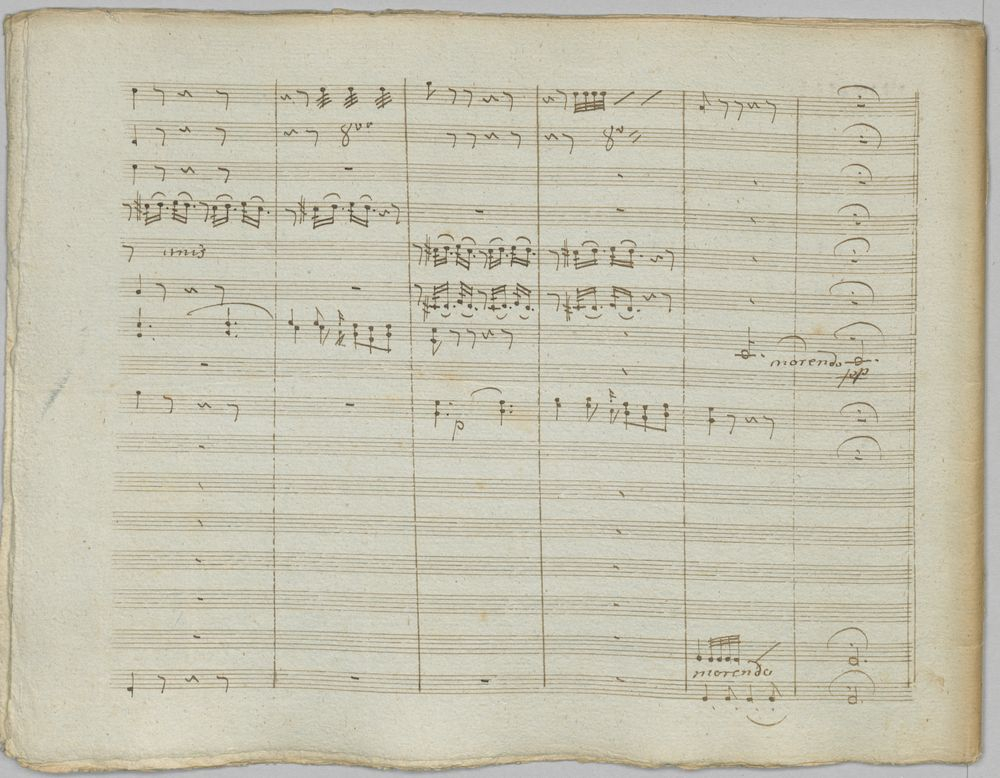 8va
8va
unis
morendo
p
morendo